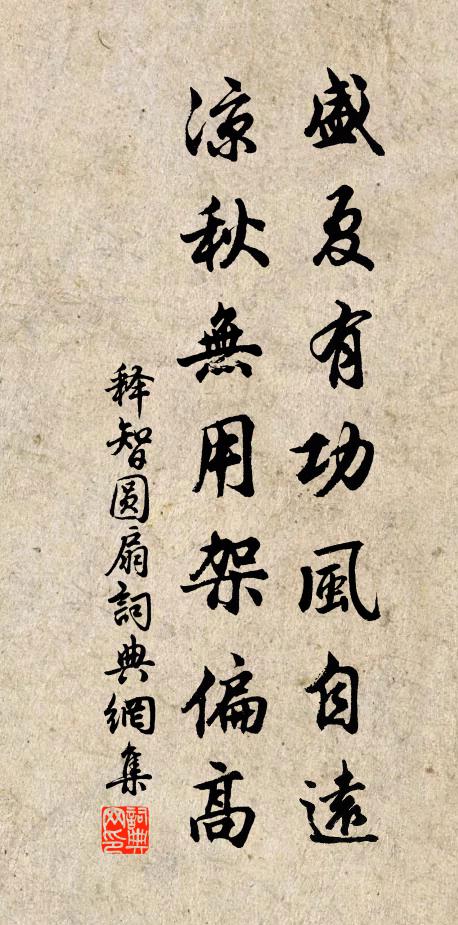 盛夏有功風自遠
涼秋無用架偏高
释智圆扇詞典網集
詞典网印